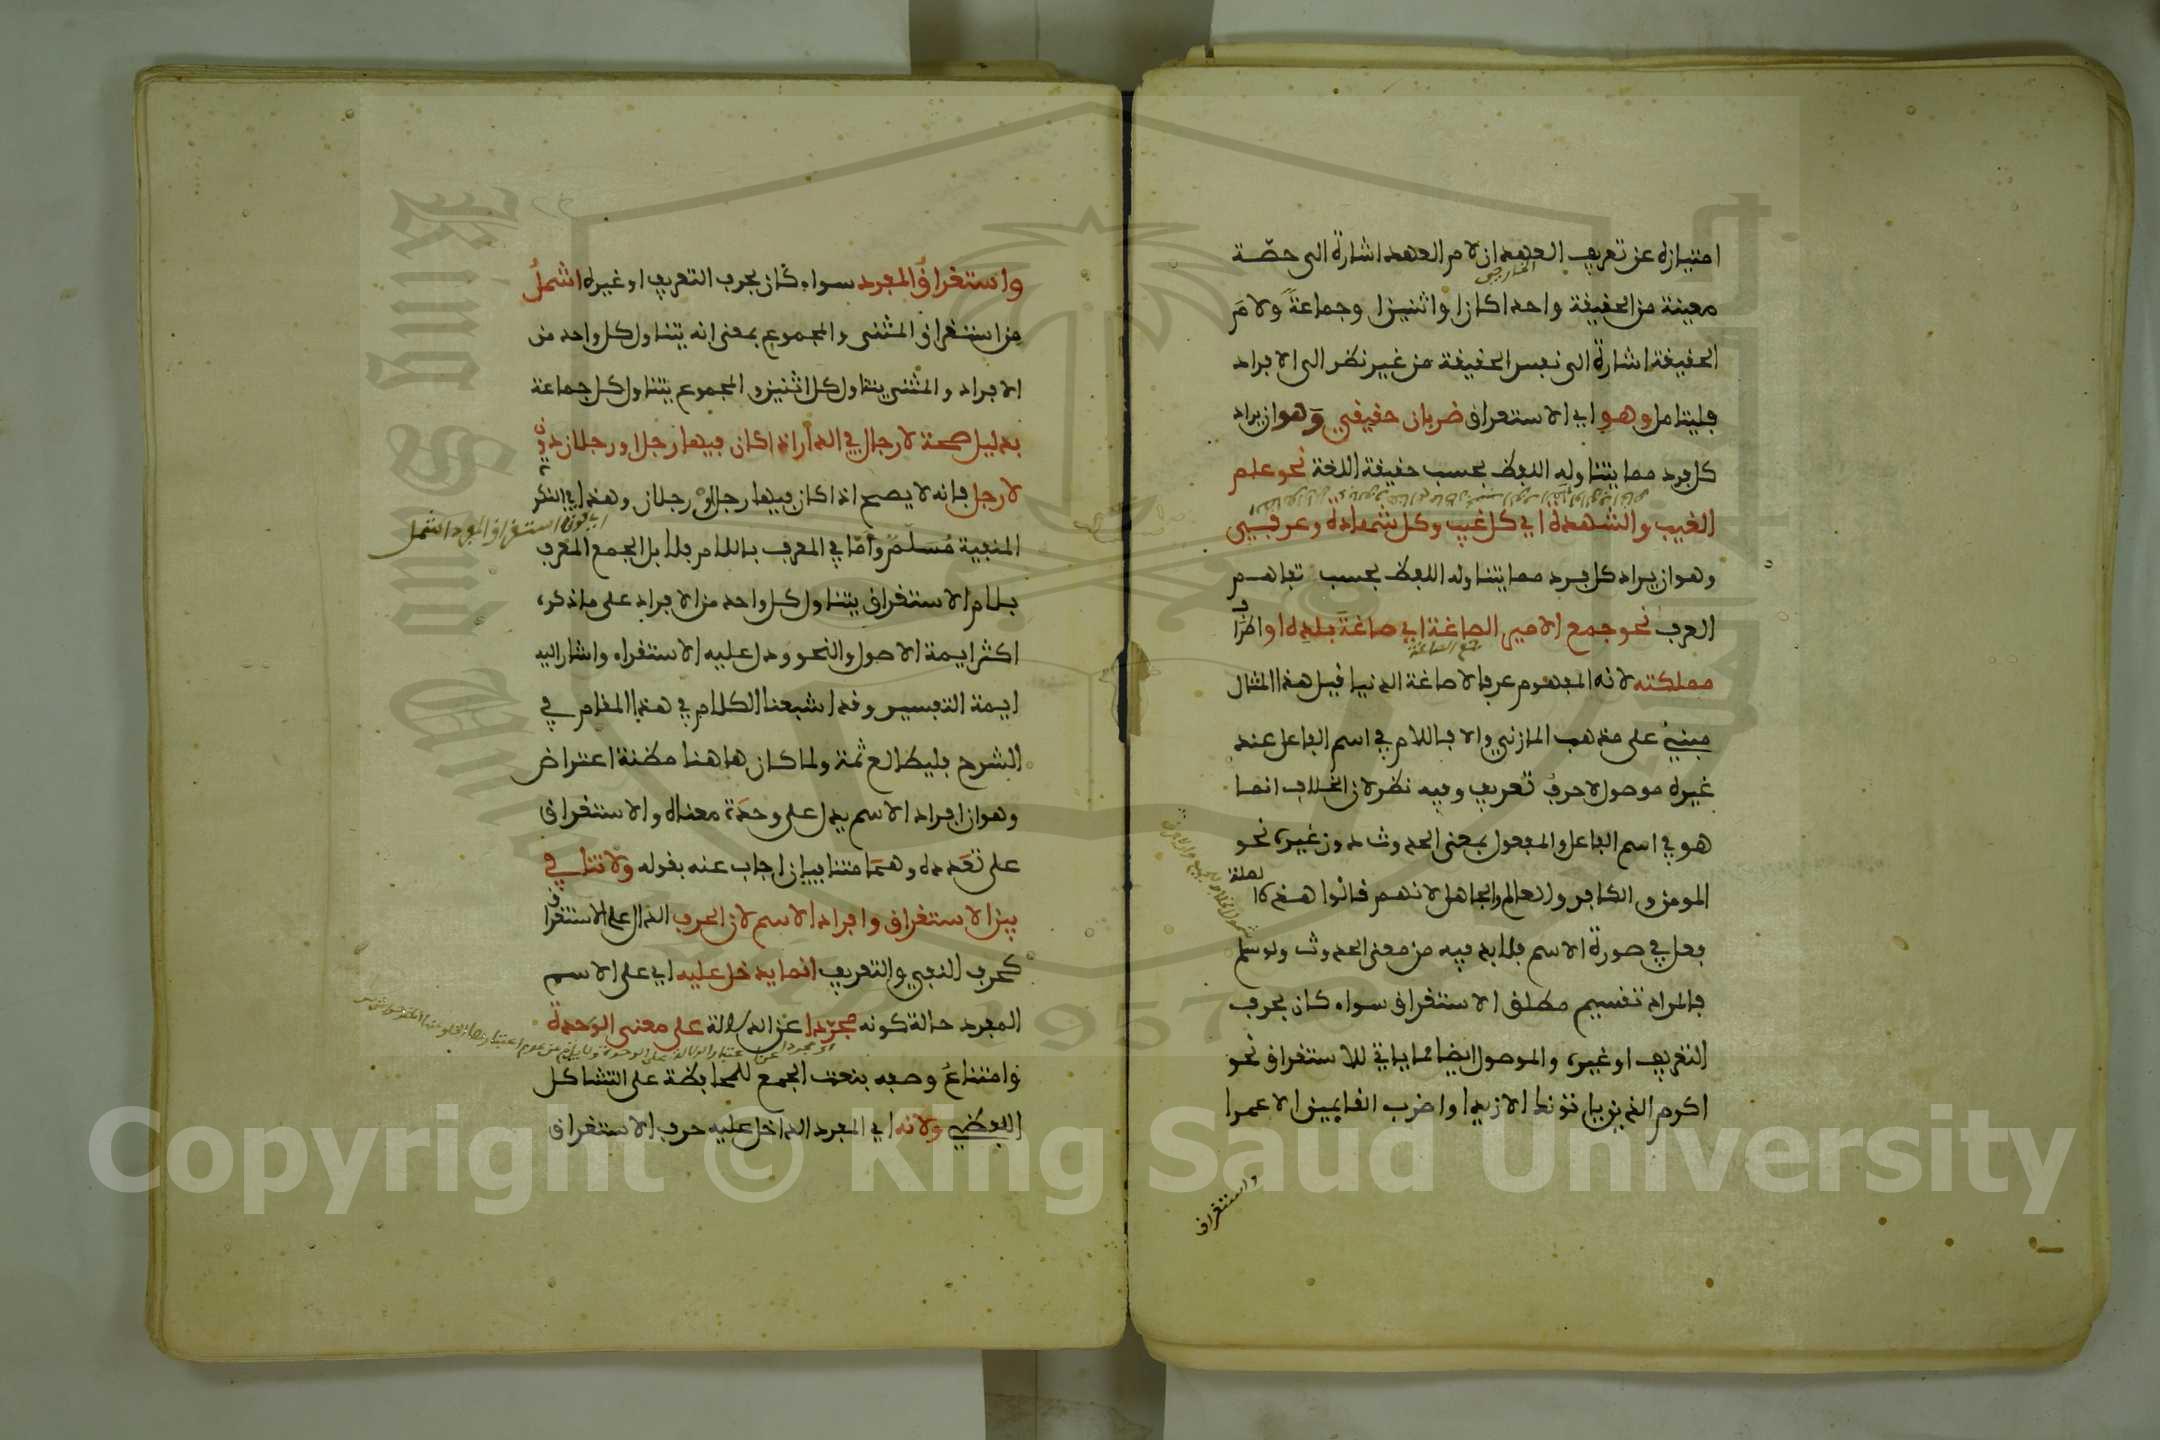 امتيازه عن تعريف العهد ان لام العهد اشارة الى حصّة
الخارجي
معينة من الحقيقة واحدا كان او اثنين او جماعةً ولامَ
الحقيقة اشارة الى نفس الحقيقة من غير نظر الى الافراد
فليتامل وهو اي الاستغراق ضربان حقيقي وَهو ان يراد
كل فرد مما يتناوله اللفظ بحسب حقيقة اللغة نحو علم
الغيب والشهدة اي كل غيب وكل شهادة وعرفي
وهو ان يراد كل فرد مما يتناوله اللفظ بحسب تفاهم
العرف نحو جمع الامير الصاغة اي صاغةَ بلده او اطراف
جمع الصاغة
مملكته لانه المفهوم عرفا لا صاغة الدنيا قيل هذا المثال
مبني على مذهب المازني والا فاللام في اسم الفاعل عند
غيره موصول لا حرفُ تعريف وفيه نظر لان الخلاف انما
هو في اسم الفاعل والمفعول بمعنى الحدوث دون غيره نحو
المومن والكافر والعالم والجاهل لانهم قالوا هذه الصلة
فعل في صورة الاسم فلا بد فيه من معنى الحدوث ولو سلم
فالمراد تقسيم مطلق الاستغراق سواء كان بحرف
التعريف او غيره والموصول ايضا مما ياتي للاستغراق نحو
اكرم الذين ياتونك الا زيدا واضرب القايمين الا عمرا
واستغراق
واستغراقُ المفرد سواء كان بحرف التعريف او غيره اشملُ
من استغراق المثنى والمجموع بمعنى انه يتناول كل واحد من
الافراد والمثنى يتناول كل اثنين والمجموع يتناول كل جماعة
بدليل صحة لا رجال في الدار اذا كان فيها رجل او رجلان دون
لا رجل فانه لا يصح اذا كان فيها رجل او رجلان وهذا في النكرة
اي قوله استغراق المفرد اشمل
المنفية مُسَلَّمٌ وأمّا في المعرف باللام فلا بل الجمع المعرف
بلام الاستغراق يتناول كل واحد من الافراد على ما ذكره
اكثر ايمة الاصول والنحو ودل عليه الاستقراء واشار اليه
ايمة التفسير وقد اشبعنا الكلام في هذا المقام في
الشرح فليطالع ثمة ولما كان هاهنا مظنة اعتراض
وهو ان افراد الاسم يدل على وحدة معناه والاستغراق
على تعدده وهما متنافيان اجاب عنه بقوله ولا تنافي
بين الاستغراق وافراد الاسم لان الحرف الدال على الاستغراق
كحرف النفي والتعريف انما يدخل عليه اي على الاسم
المفرد حالة كونه مجرّدا عن الدلالة على معنى الوَحدة
وامتناعُ وصفه بنعت الجمع للمحافظة على التشاكل
اللفظي وَلانه اي المفرد الداخل عليه حرف الاستغراق
King Saud University
1957
Copyright © King Saud University